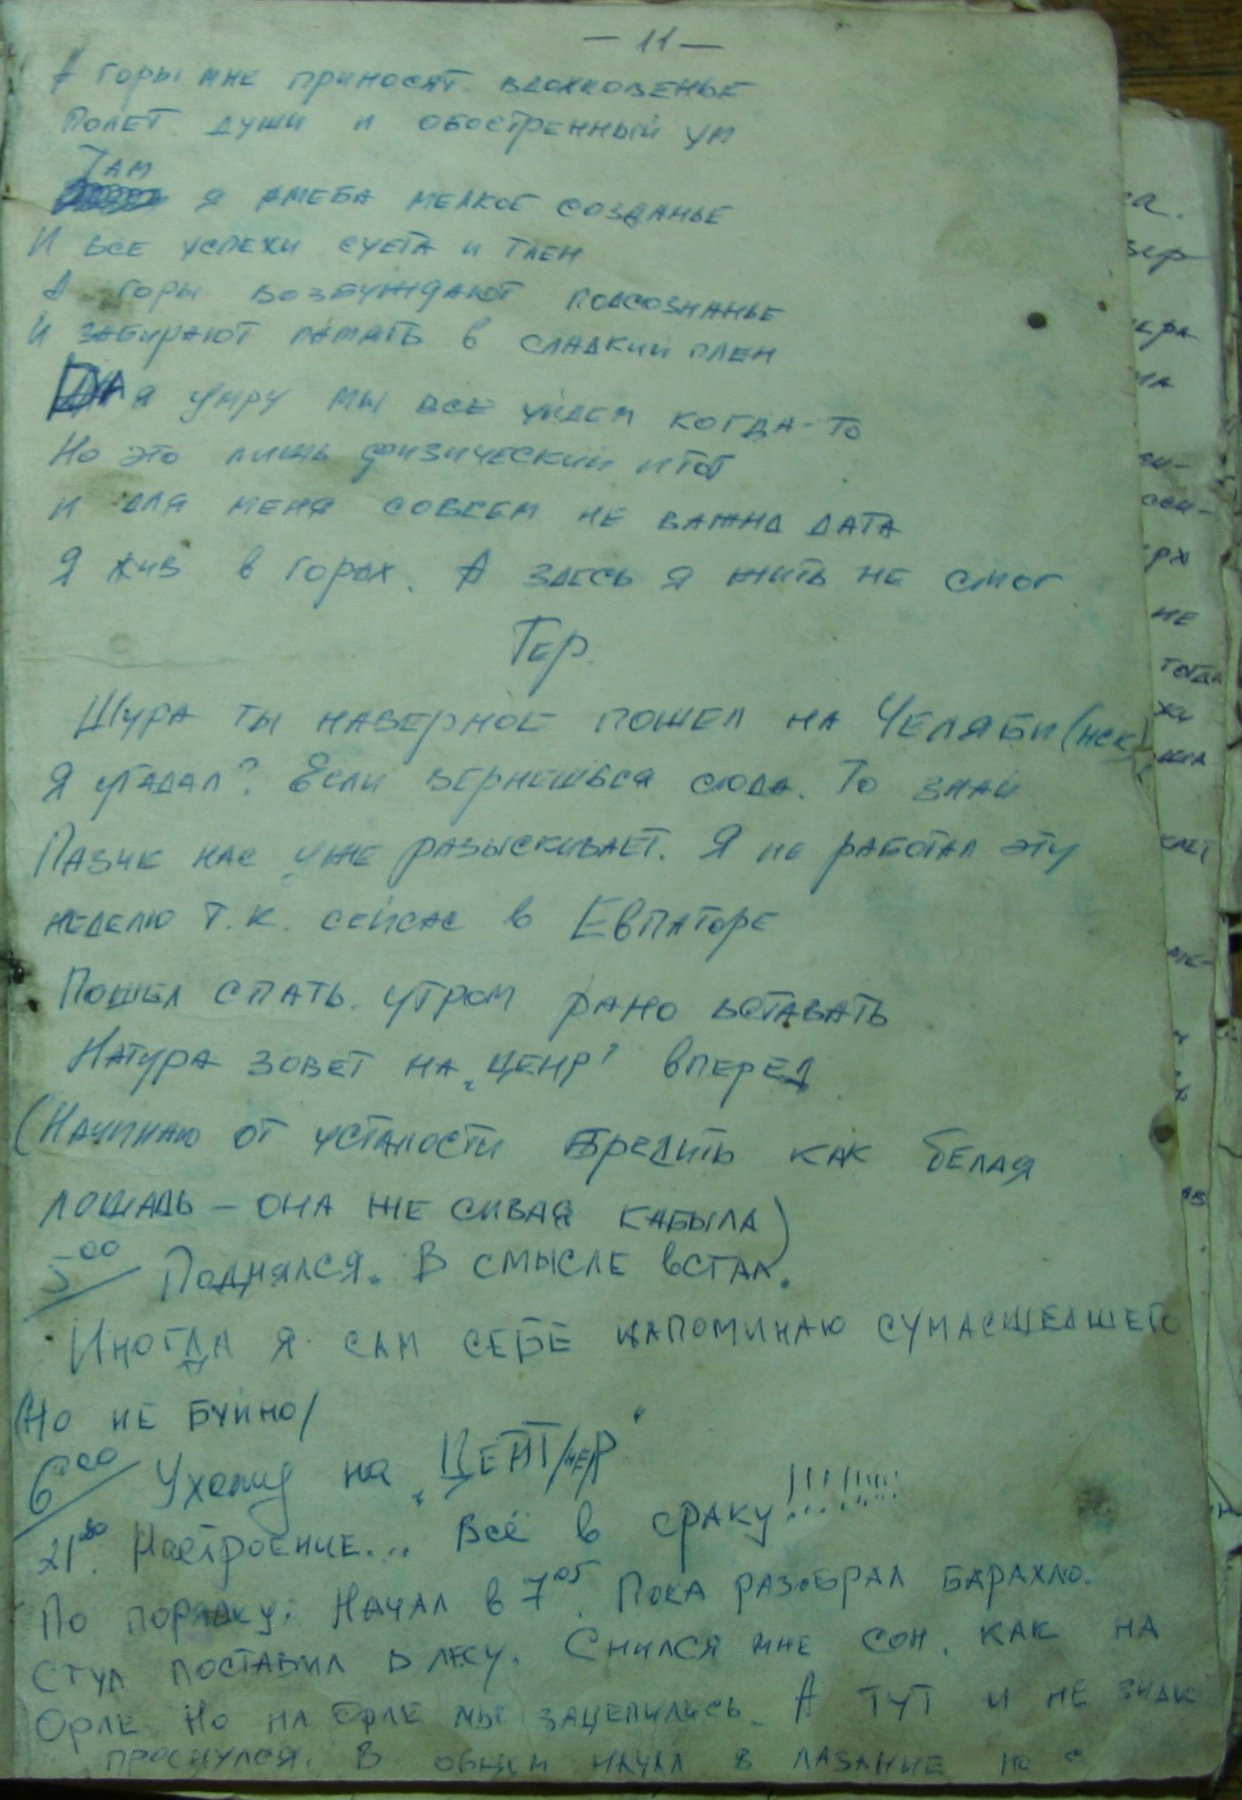 — 11 —
А горы мне приносят вдохновенье
Полет души и обостренный ум
Там
я амеба мелкое созданье
И все успехи суета и тлен
А горы возбуждают подсознанье
И забирают память в сладкий плен
Да я умру мы все уйдем когда-то
Но это лишь физический итог
и для меня совсем не важна дата
Я жив в горах. А здесь я жить не смог
Гер.
Шура ты наверное пошел на Челяби(нск)
Я угадал? Если вернешься сюда. То знай
Пазик нас уже разыскивает. Я не работал эту
неделю т.к. сейсас в Евпаторе
Пошел спать. утром рано вставать
Натура зовет на „ценр" вперед
(Начинаю от усталости бредить как белая
лошадь – она же сивая кабыла)
5⁰⁰ Поднялся. В смысле встал.
Иногда я сам себе напоминаю сумасшедшего
(но не буйно/
6⁰⁰ Ухожу на „Цент/не/р"
21³⁰. Настроение... Всё в сраку!!!!!!!!
По порядку: Начал в 7⁰⁵. Пока разобрал барахло.
Стул поставил в лесу. Снился мне сон. как на
Орле. Но на Орле мы зацепились. А тут и не
проснулся. В общем начал в лазание по
са.
зер
тогда
не
рх